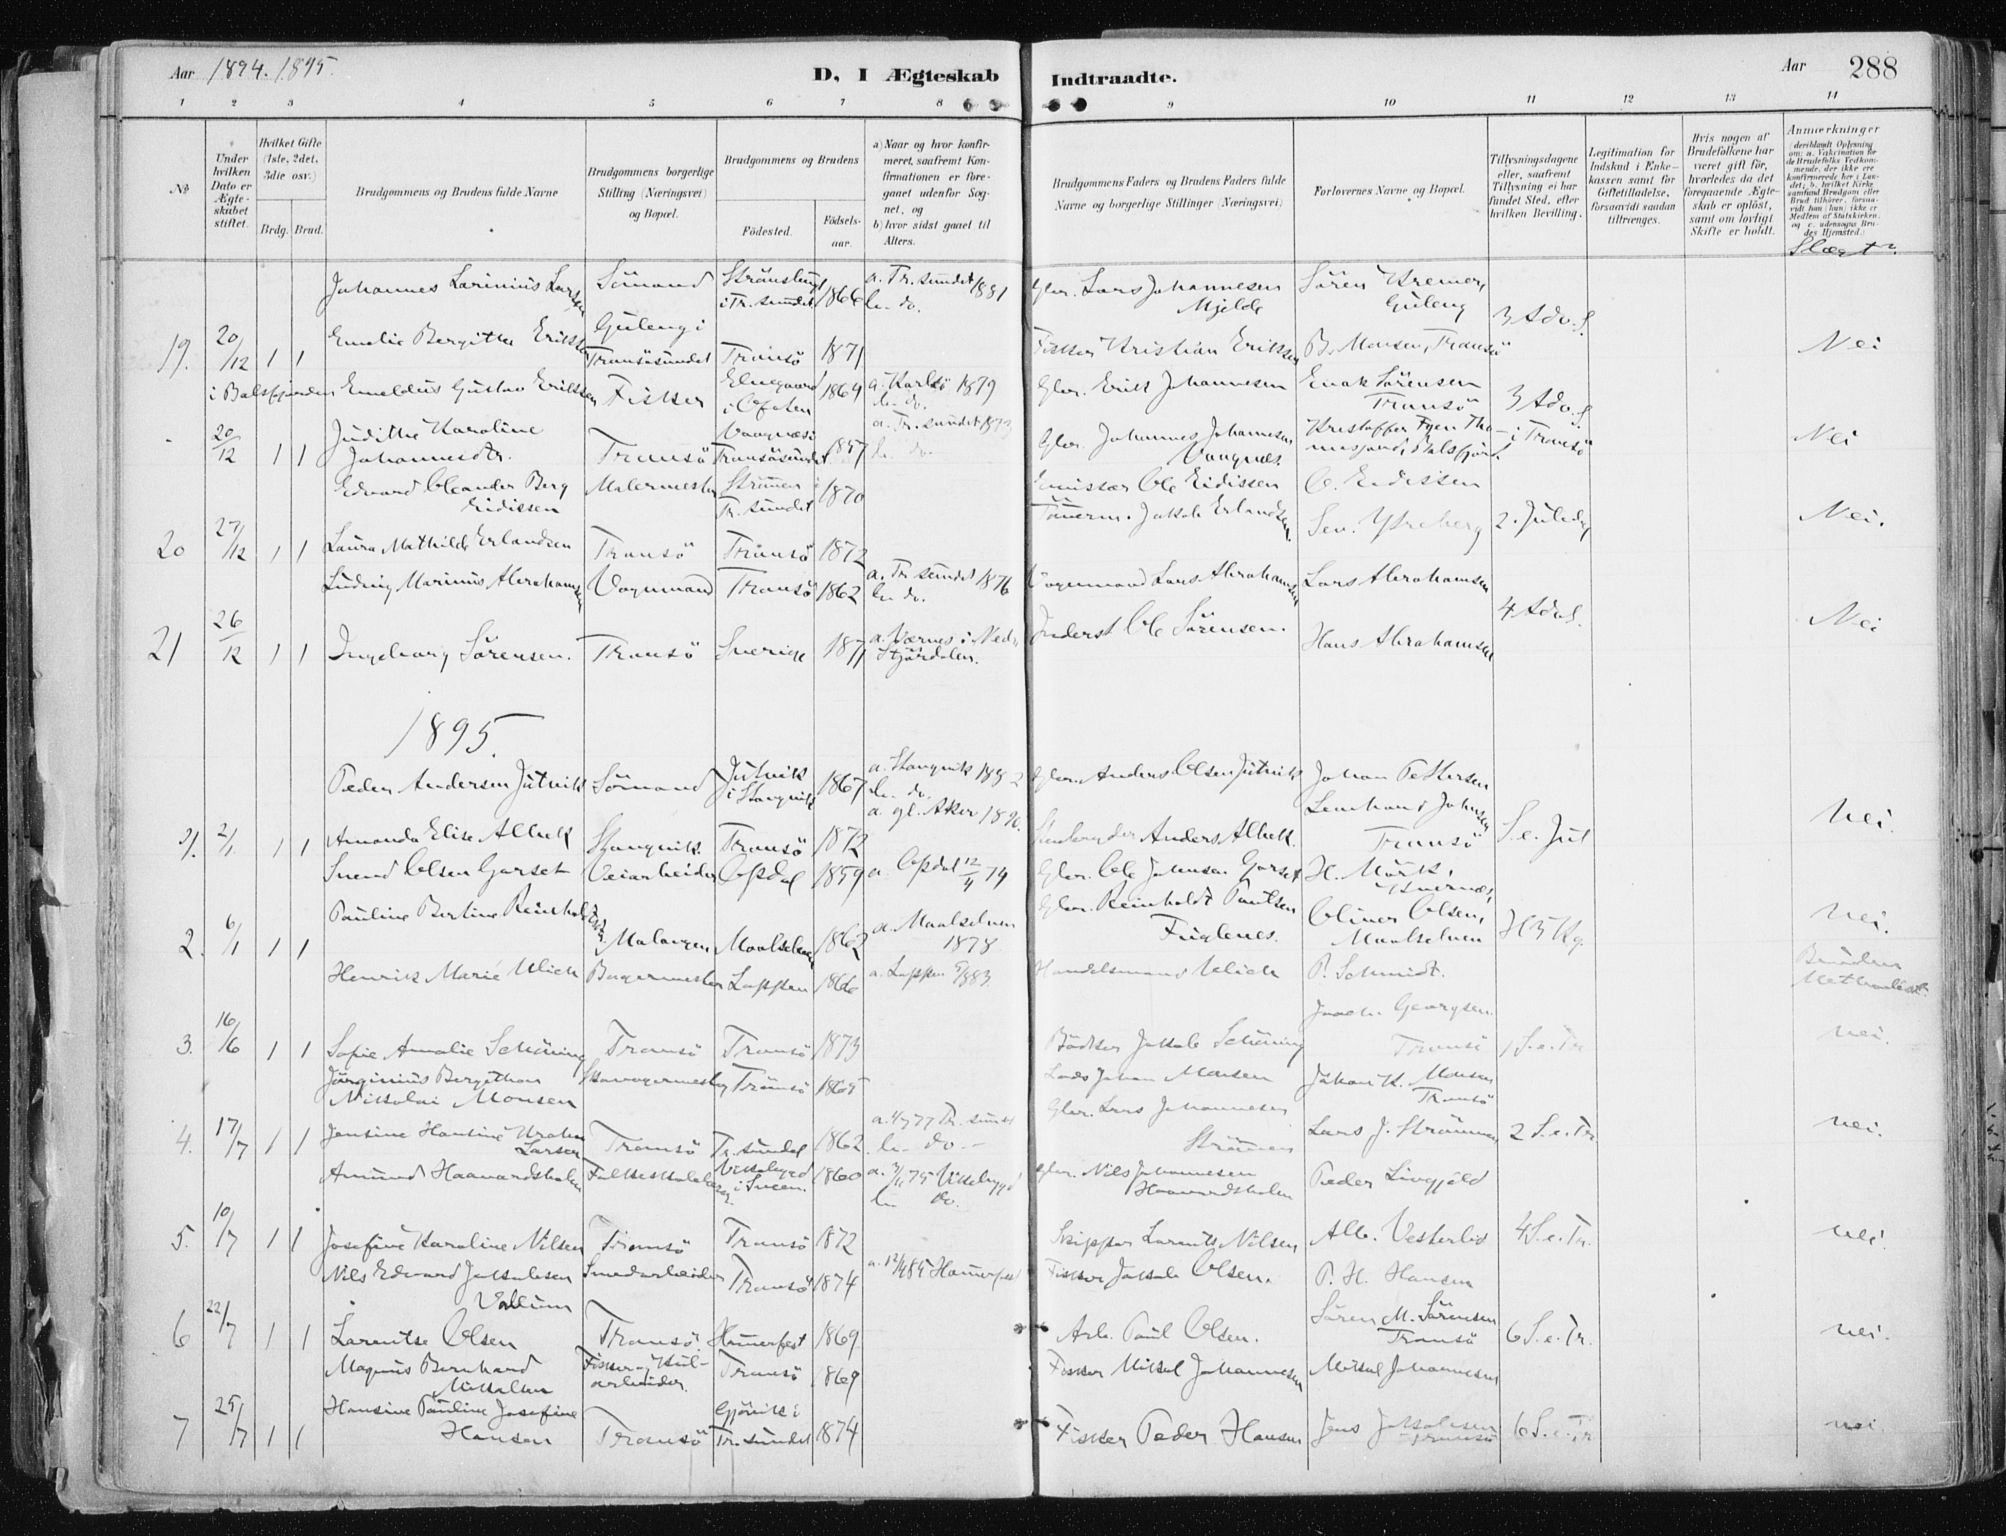 Aar 1894. 1895.
D, I Ægteskab Indtraadte.
Aar 288
1 2 3 4 5 6 7 8 9 10 11 12 13 14
No
Under hvilken Dato er Ægteskabet stiftet.
Hvilket Gifte (1ste, 2det, 3die osv.)
Brdg. Brud.
Brudgommens og Brudens fulde Navne
Brudgommens borgerlige Stilling (Næringsvei) og Bopæl.
Brudgommens og Brudens
Fødested. Fødselsaar.
a) Naar og hvor konfirmeret, saafremt Konfirmationen er foregaaet udenfor Sognet, og
b) hvor sidst gaaet til Alters.
Brudgommens Faders og Brudens Faders fulde Navne og borgerlige Stillinger (Næringsvei)
Forlovernes Navne og Bopæl.
Tillysningsdagene eller, saafremt Tillysning ei har fundet Sted, efter hvilken Bevilling.
Legitimation for Indskud i Enkekassen samt for Giftetilladelse, forsaavidt saadan tiltrænges.
Hvis nogen af Brudefolkene har været gift før, hvorledes da det foregaaende Ægteskab er opløst, samt om lovligt Skifte er holdt.
Anmærkninger (deriblandt Oplysning om: a. Vakcination for de Brudefolks Vedkommende, der ikke ere konfirmerede her i Landet; b. hvilket Kirkesamfund Brudgom eller Brud tilhører, forsaavidt han (hun) ikke er Medlem af Statskirken, og c. udensogns Brudes Hjemsted.)
Slægt?
Johannes Larinius Larsen Sömand i Tr.sundet 1866 a. Tr.sundet 1881 b. do. Gbr. Lars Johannesen Mjelde Sören Kremer, Guleng
19. 20/12 1 1 Emelie Bergitte Eriksen Guleng i Tromsösundet Tromsö 1871 Fisker Kristian Eriksen B. Monsen, Tromsö 3 Adv. S. Nei
i Balsfjorden Emeldus Gustav Eriksen Fisker i Ofoten 1869 a. Karlsö 1879 b. do. Gbr. Erik Johannesen Enok Sörensen Tromsö 3 Adv. S.
20/12 1 1 Judithe Karoline Johannesdtr. Tromsö Vaagnæs i Tromsösundet 1857 a. Tr.sundet 1873 b. do. Gbr. Johannes Johannesen Vaagnæs. Kristoffer Balsfjord i Tromsö Nei
Edvard Oleander Berg Eidissen Malermester Strömmen i Tr.sundet 1870 Emissær Ole Eidissen O. Eidissen
20 27/12 1 1 Laura Mathilde Erlandsen Tromsö Tromsö 1872 Jakob Erlandsen. Sev. Ytreberg 2. Juledag Nei.
Ludvig Marinus Abrahamsen Vognmand Tromsö 1862 a. Tr.sundet 1876 b. do. Vognmand Lars Abrahamsen Lars Abrahamsen
21 26/12 1 1 Ingeborg Sörensen. Tromsö Sverige 1871 a. Værnes i Ned. Stjørdalen. Inderst Ole Sörensen. Hans Abrahamsen 4 Adv. S. Nei
1895.
Peder Andersen Jutvik Sömand Jutvik i Stangvik 1867 a. Stangvik 1882 b. do. Gbr. Anders Olsen Jutvik Johan Pettersen
1. 2/1 1 1 Amanda Elise Albek Stangvik Tromsö 1872 a. gl. Aker 1890. Anders Albek. Lenhard Johnsen Tromsö S. e. Jul Nei.
Svend Olsen Garset Veiarbeider Opdal 1859 a. Opdal 12/4 74 Gbr. Ole Johnsen Garset H. Mörk,
2. 6/1 1 1 Pauline Bertine Reinholdsen Malangen Maalselven 1862 a. Maalselven 1878. Gbr. Reinholdt Paulsen Fuglenes. Oliver Olsen, Maalselven H 3 Kg. Nei.
Henrik Marie Ulich Bagermester Loppen 1866 a. Loppen 1883. Handelsmand Ulich P. Schmidt. Bruden Methodist.
3. 16/6 1 1 Sofie Amalie Schöning Tromsö Tromsö 1873 Bödker Jakob Schöning Joach. Georgsen. Tromsö 1 S. e. Tr nei.
Jörginius Bergithon Nikolai Monsen Skavogermester Tromsö 1865 Lods Johan Monsen Johan K. Monsen Tromsö
4. 17/7 1 1 Jensine Hansine Larsen Tromsö Tr.sundet 1862 a. 77 Tr.sundet b. do. Gbr. Lars Johannesen Strömmen Lars J. Strömmen 2 S. e. Tr nei.
Amund Haavardsholm Vikebygd 1860 a. 75 Vikebygd b. do. Gbr. Nils Johannesen Haavardsholm Peder Livgjeld
5. 10/7 1 1 Josefine Karoline Nilsen Tromsö Tromsö 1872 Skipper Larents Nilsen Alb. Vesterlid 4 S. e. Tr. nei.
Nils Edvard Jakobsen Vollum Smedarbeider Tromsö 1874 a. Hammerfest Fisker Jakob Olsen. P. H. Hansen
6 22/7 1 1 Larentse Olsen Tromsö. Hammerfest 1869 Arb. Paul Olsen. Sören M. Sörensen Tromsö 6 S. e. Tr. nei.
Magnus Bernhard Mikalsen Fisker og Kularbeider. Tromsö 1869 Fisker Mikal Johannesen Mikal Johannesen
7 25/7 1 1 Hansine Pauline Josefine Hansen Tromsö Gjövik i Tr.sundet 1874 Fisker Peder Hansen Jens Jakobsen Tromsö 6 S. e. Tr nei